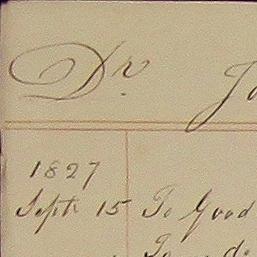 Dr. Jo
1827
Sept. 15 To Good
To do